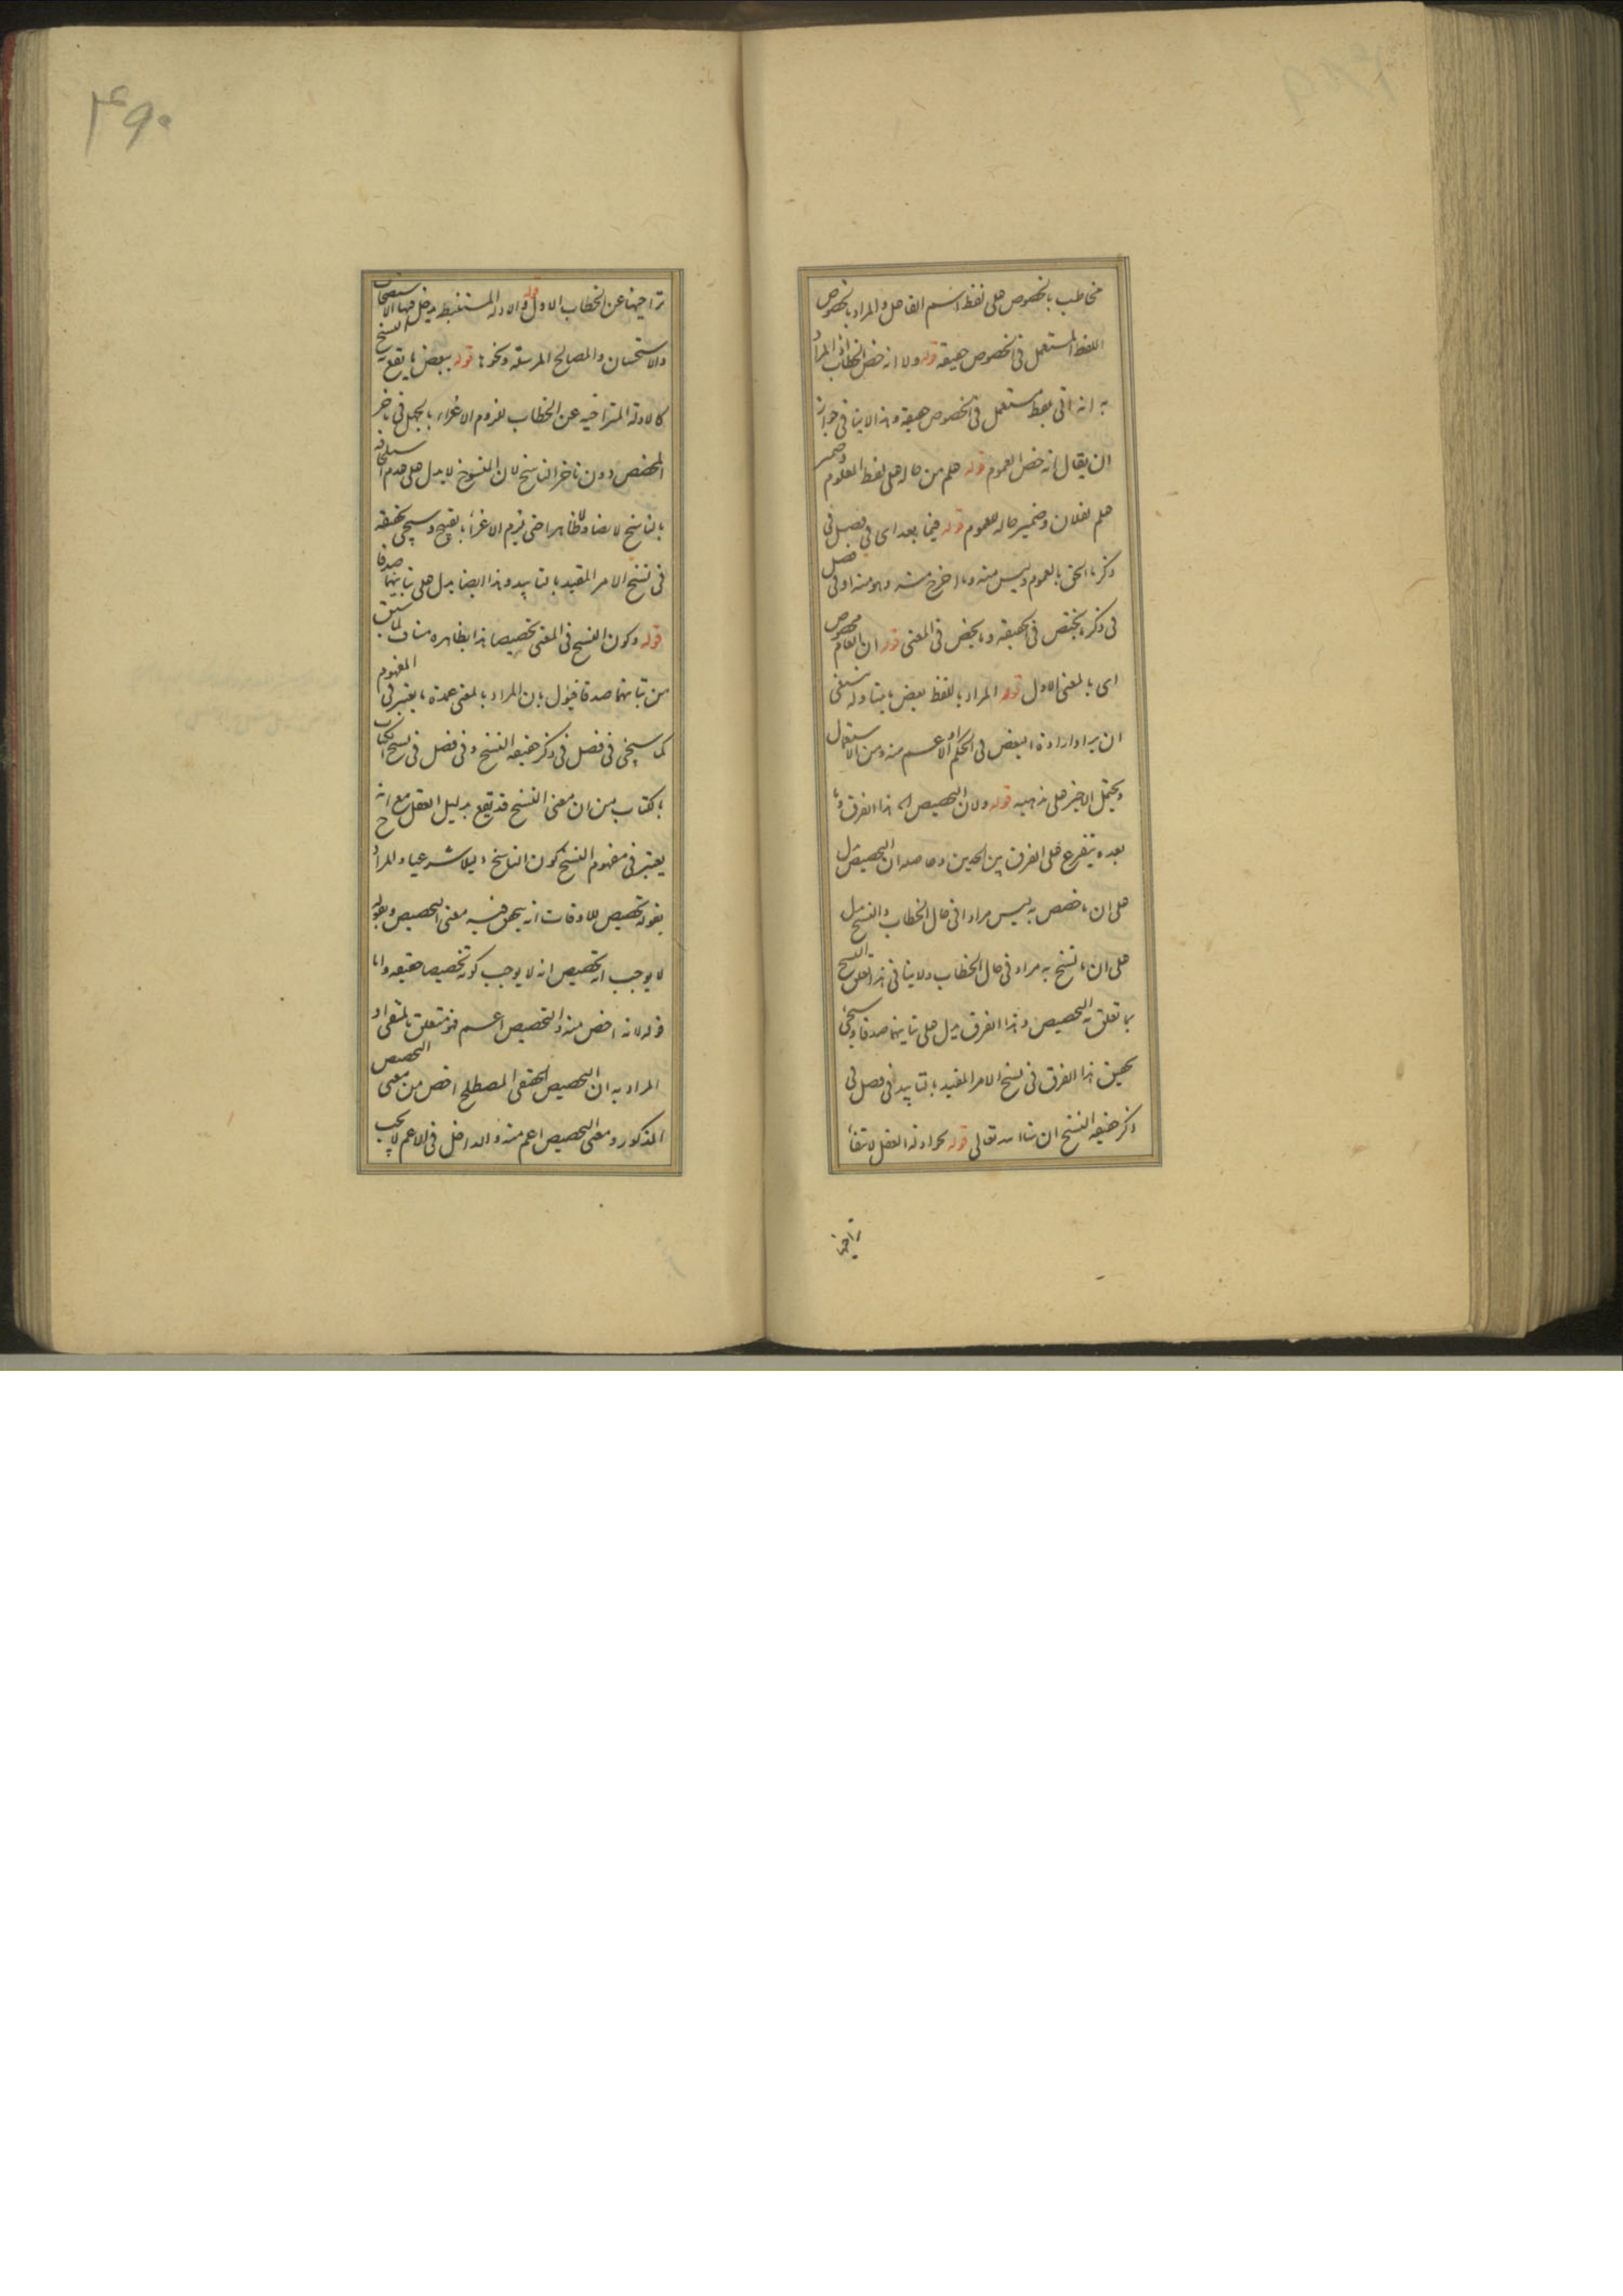 مخاطب بالخصوص على لفظ اسم الفاعل والمراد بالخصوص
اللفظ المستعمل في الخصوص حقيقة قوله ولا انه خص الخطاب اذ المراد
به انه اتى بلفظ مستعمل في الخصوص حقيقة وهذا لا ينافي جواز
ان يقال انه خص العموم قوله علم من حاله على لفظ المعلوم وضمير
علم لفلان وضمير حاله للعموم قوله فيما بعد اى في فصل في
ذكر ما الحق بالعموم وليس منه وما اخرج منه وهو منه او في فصل
في ذكر ما يختص في الحقيقة وما يخص في المعنى قوله ان العام مخصوص
اى بالمعنى الاول قوله المراد باللفظ بعض ما يتناوله ينبغي
ان يراد ارادة البعض في الحكم او الاعم منه ومن الاستعمال
ويحتمل الاخير على مذهبه قوله ولان التخصيص اه هذا الفرق وما
بعده يتفرع على الفرق بين الحدين وحاصله ان التخصيص يدل
على ان ما خصص به ليس مرادا في حال الخطاب والنسخ يدل
على ان ما نسخ به مراد في حال الخطاب ولا ينافي هذا تعلق النسخ
بما تعلق به التخصيص وهذا الفرق يدل على تباينهما صدقا وسيجئ
تحقيق هذا الفرق في نسخ الامر المقيد بالتابيد في فصل في
ذكر حقيقة النسخ ان شاء الله تعالى قوله ادلة العقل
تراخيها
۴۹۰
تراخيها عن الخطاب الاول قوله والادلة المستنبطة يدخل فيها الاستصحاب
والاستحسان والمصالح المرسلة ونحوها قوله ببعض ما يقع به النسخ
كالادلة المتراخية عن الخطاب للزوم الاغراء بالجهل في تاخر
المخصص دون تاخر الناسخ لان المنسوخ لا يدل على عدم
بالناسخ لا نصا ولا ظاهرا حتى يلزم الاغراء بالقبيح وسيجئ تحقيقه
في نسخ الامر المقيد بالتابيد وهذا ايضا يدل على تباينهما صدقا
قوله وكون النسخ في المعنى تخصيصا هذا بظاهره مناف لما سبق
من تباينهما صدقا فيؤل بان المراد بالمعنى عمدة ما يعتبر في المفهوم
كما سيجئ في فصل في ذكر حقيقة النسخ وفي فصل في نسخ الكتاب
بالكتاب من ان معنى النسخ قد يقع بدليل العقل مع انه
يعتبر في مفهوم النسخ كون الناسخ دليلا شرعيا والمراد
بقوله تخصيص للاوقات انه يتحقق فيه معنى التخصيص وبقوله
لا يوجب انه تخصيص انه لا يوجب كونه تخصيصا حقيقة واما
قوله لانه اخص منه والتخصيص اعم فهو متعلق بالمنفى او
المراد به ان التخصيص الحقيقي المصطلح اخص من معنى التخصيص
المذكور ومعنى التخصيص اعم منه والداخل في الاعم لا يجب